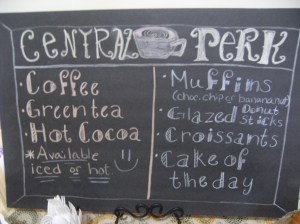 CENTRAL PERK
· Coffee
· Green tea
· Hot Cocoa
* Available
iced or hot
· Muffins
(choc. chip or banana nut)
· Glazed Donut
Sticks
· Croissants
· Cake of
the day